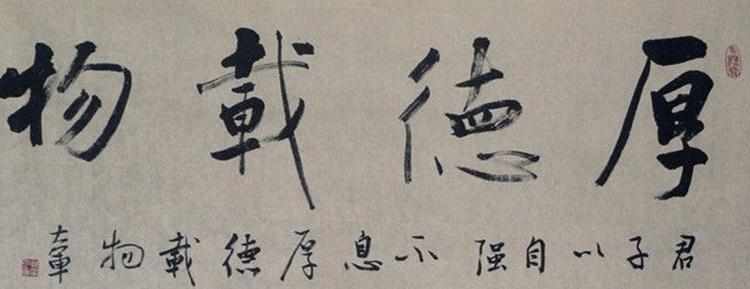 厚德載物
君子以自强不息厚德載物